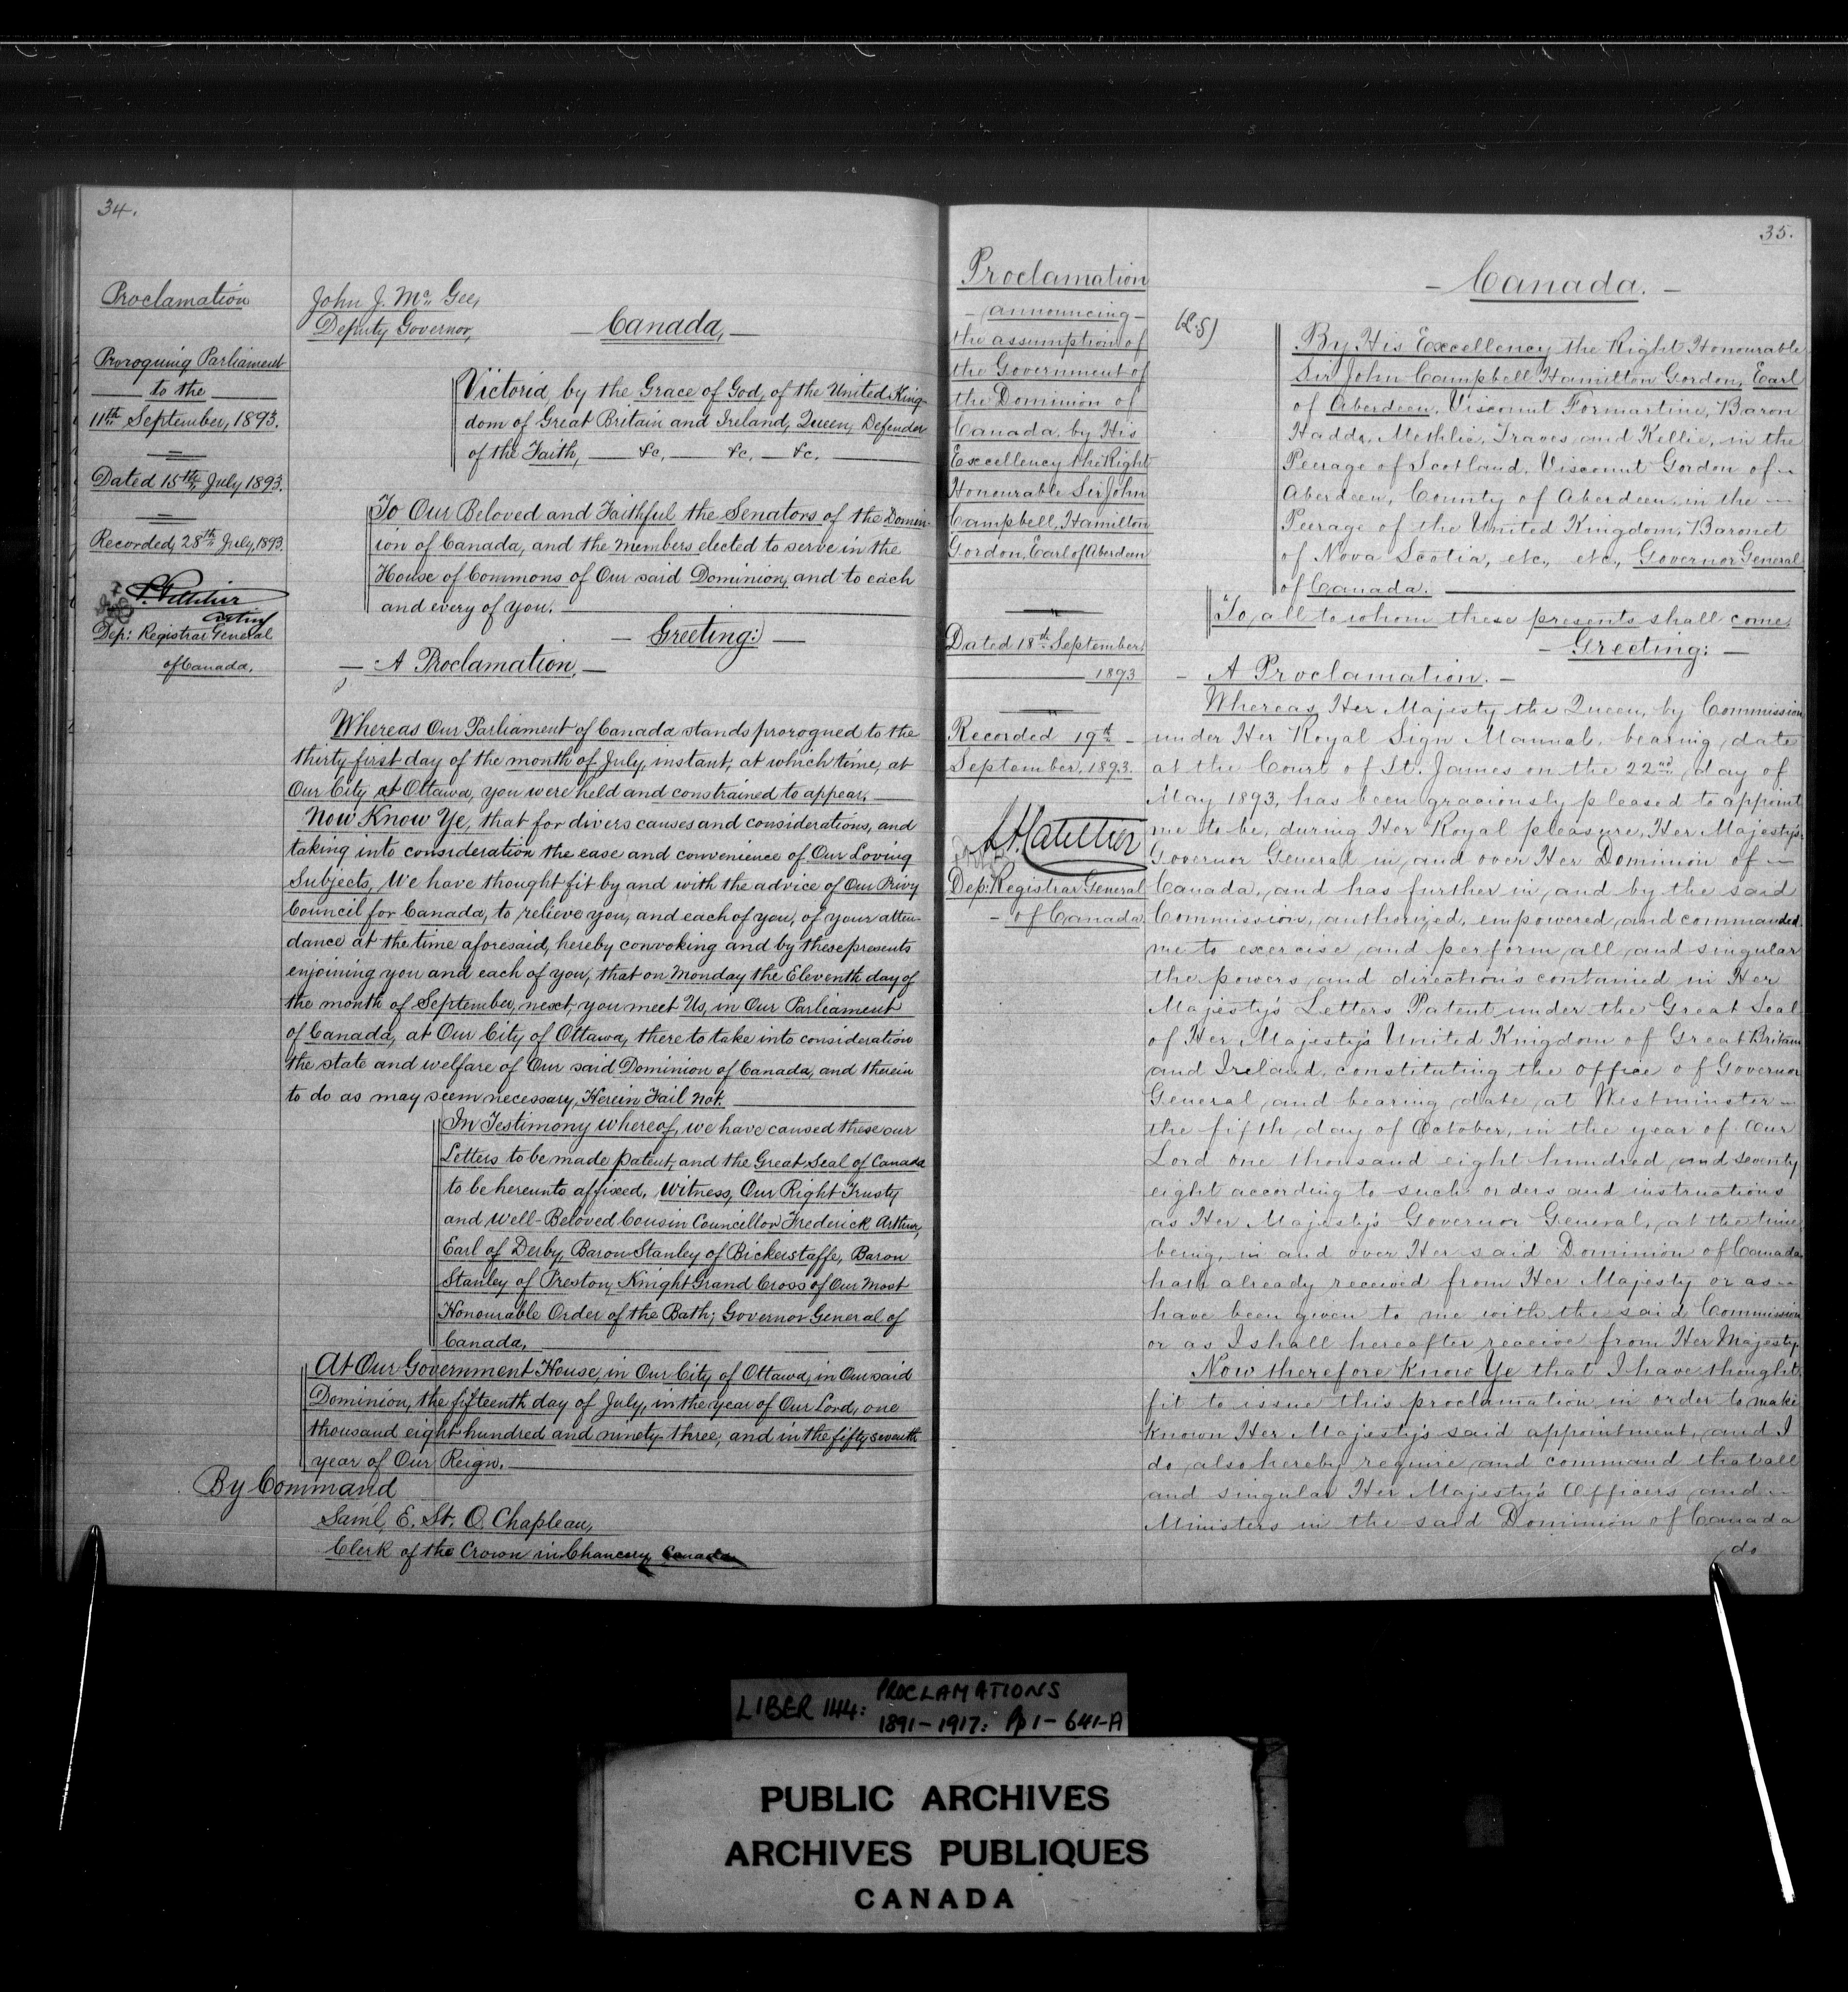 34.
Proclamation
Proroguing Parliament
to the
11th September, 1893.
Dated 15th July 1893.
Recorded 28th July, 1893.
P. Pelletier
Acting
Dep: Registrar General
of Canada.
John J. Mc Gee,
Deputy Governor,
— Canada, —
Victoria, by the Grace of God, of the United King-
dom of Great Britain and Ireland, Queen, Defender
of the Faith, — &c, — &c, — &c.
To Our Beloved and Faithful the Senators of the Domin-
ion of Canada, and the Members elected to serve in the
House of Commons of Our said Dominion, and to each
and every of you.
— Greeting: —
— A Proclamation, —
Whereas Our Parliament of Canada stands prorogued to the
thirty first day of the month of July, instant, at which time, at
Our City at Ottawa, you were held and constrained to appear,
Now Know Ye, that for divers causes and considerations, and
taking into consideration the ease and convenience of Our Loving
Subjects, We have thought fit by and with the advice of Our Privy
Council for Canada, to relieve you, and each of you, of your atten-
dance at the time aforesaid, hereby convoking and by these presents
enjoining you and each of you, that on Monday the Eleventh day of
the month of September, next, you meet Us, in Our Parliament
of Canada, at Our City of Ottawa, there to take into consideration
the state and welfare of Our said Dominion of Canada, and therein
to do as may seem necessary, Herein Fail Not.
In Testimony Whereof, we have caused these our
Letters to be made patent, and the Great Seal of Canada
to be hereunto affixed. Witness, Our Right Trusty
and Well-Beloved Cousin Councillor Frederick Arthur,
Earl of Derby, Baron Stanley of Bickerstaffe, Baron
Stanley of Preston, Knight Grand Cross of Our Most
Honourable Order of the Bath; Governor General of
Canada,
At Our Government House, in Our City of Ottawa, in Our said
Dominion, the fifteenth day of July, in the year of Our Lord, one
thousand eight hundred and ninety-three, and in the fifty seventh
year of Our Reign.
By Command
Saml, E. St. O. Chapleau,
Clerk of the Crown in Chancery, Canada
35.
Proclamation
— announcing —
the assumption of
the Government of
the Dominion of
Canada, by His
Excellency the Right
Honourable Sir John
Campbell, Hamilton
Gordon, Earl of Aberdeen
Dated 18th September
1893
Recorded 19th
September, 1893.
Dep: Registrar General
— of Canada.
— Canada. —
(L.S)
By His Excellency the Right Honourable
Sir John Campbell Hamilton Gordon, Earl
of Aberdeen, Viscount Formartine, Baron
Haddo, Methlic, Traves and Kellie, in the
Peerage of Scotland, Viscount Gordon of —
Aberdeen, County of Aberdeen, in the —
Peerage of the United Kingdom, Baronet
of Nova Scotia, etc, etc, Governor General
of Canada.
To all to whom these presents shall come,
— Greeting: —
— A Proclamation. —
Whereas, Her Majesty the Queen, by Commission
under Her Royal Sign Manual, bearing date
at the Court of St. James on the 22nd day of
May 1893, has been graciously pleased to appoint
me to be, during Her Royal pleasure, Her Majesty's
Governor General in, and over Her Dominion of —
Canada, and has further in, and by the said
Commission, authorized, empowered, and commanded
me to exercise and perform, all, and singular
the powers and directions contained in Her
Majesty's Letters Patent under the Great Seal
of Her Majesty's United Kingdom of Great Britain
and Ireland, constituting the office of Governor
General, and bearing date, at Westminster —
the fifth day of October, in the year of Our
Lord one thousand eight hundred and seventy
eight according to such orders and instructions
as Her Majesty's Governor General, at the time
being, in and over Her said Dominion of Canada
hath already received from Her Majesty or as —
have been given to me with the said Commission
or as I shall hereafter receive from Her Majesty.
Now therefore Know Ye that I have thought
fit to issue this proclamation in order to make
known Her Majesty's said appointment, and I
do also hereby require and command that all
and singular Her Majesty's Officers and —
Ministers in the said Dominion of Canada
do
LIBER 144: PROCLAMATIONS
1891-1917: Pp 1-641-A
PUBLIC ARCHIVES
ARCHIVES PUBLIQUES
CANADA